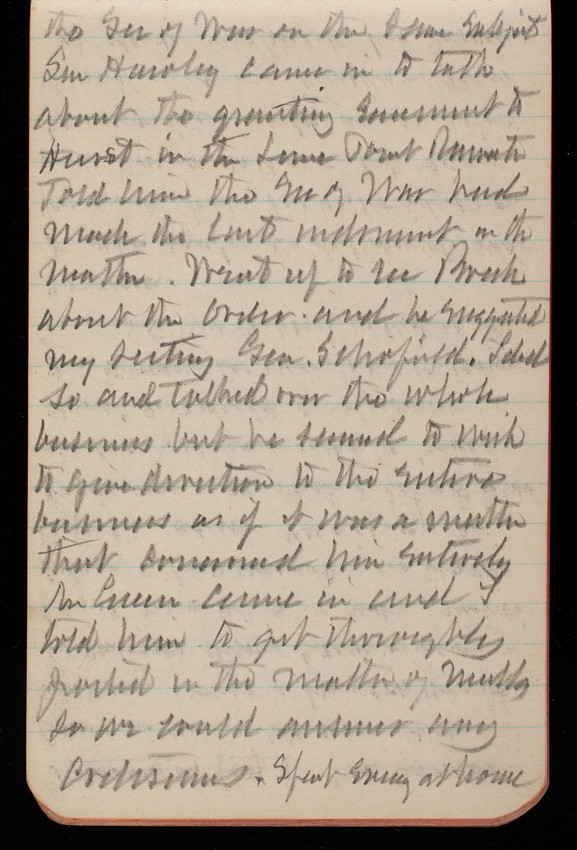 the Sec of War on the same subject
Sen Hawley came in to talk
about the granting easement to
Hurst in the
Told him the Sec of War had
made the last indorsment on the
matter. Went up to see
about the order. and he suggested
my seeing Gen. Schofield. I did
so and talked over the whole
business but he seemed to wish
to give direction to the entire
business as if it was a matter
that concerned him entirely
came in and I
told him to get thoroughly
posted in the matter of
so we could answer any
Criticisms. Spent Evening at home